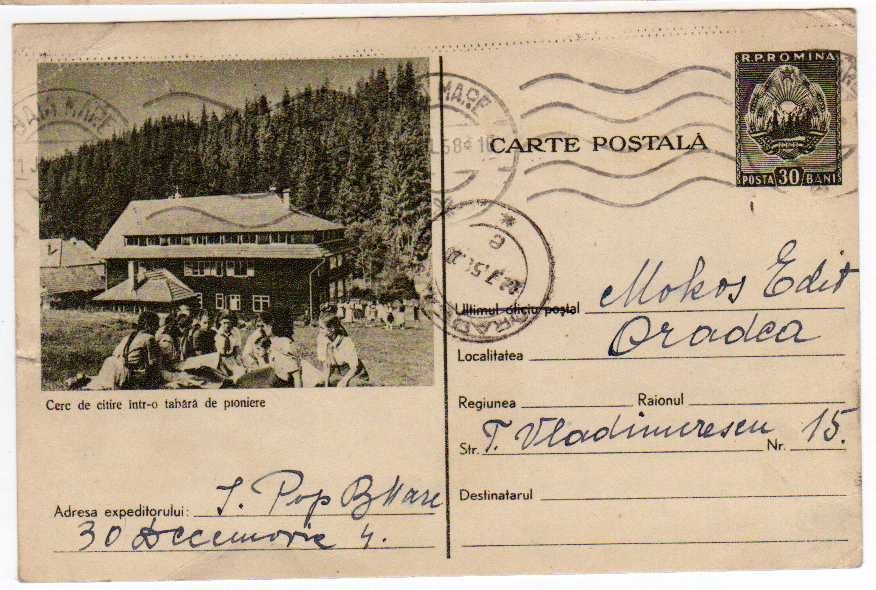 R.P.ROMINA
POSTA 30 BANI
CARTE POSTALĂ
BAIA MARE
MARE
ORADEA
Cerc de citire într-o tabără de pioniere
Ultimul oficiu poștal Mokos Edit
Localitatea Oradea
Regiunea Raionul
Str. T. Vladimirescu Nr. 15.
Destinatarul
Adresa expeditorului: I. Pop B Mare
30 Decemvrie 4.